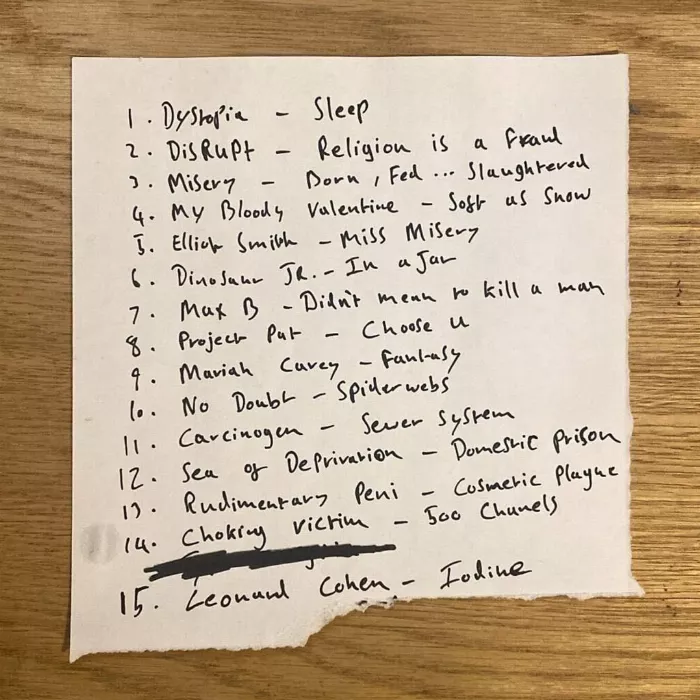 1. Dystopia - Sleep
2. DisRuPt - Religion is a fraud
3. Misery - Born, Fed ... Slaughtered
4. My Bloody Valentine - Soft as Snow
5. Elliot Smith - Miss Misery
6. Dinosaur JR. - In a Jar
7. Max B - Didn't mean to kill a man
8. Project Pat - Choose U
9. Mariah Carey - Fantasy
10. No Doubt - Spiderwebs
11. Carcinogen - Sewer System
12. Sea of Deprivation - Domestic Prison
13. Rudimentary Peni - Cosmetic Plague
14. Choking Victim - 500 Chanels
15. Leonard Cohen - Iodine